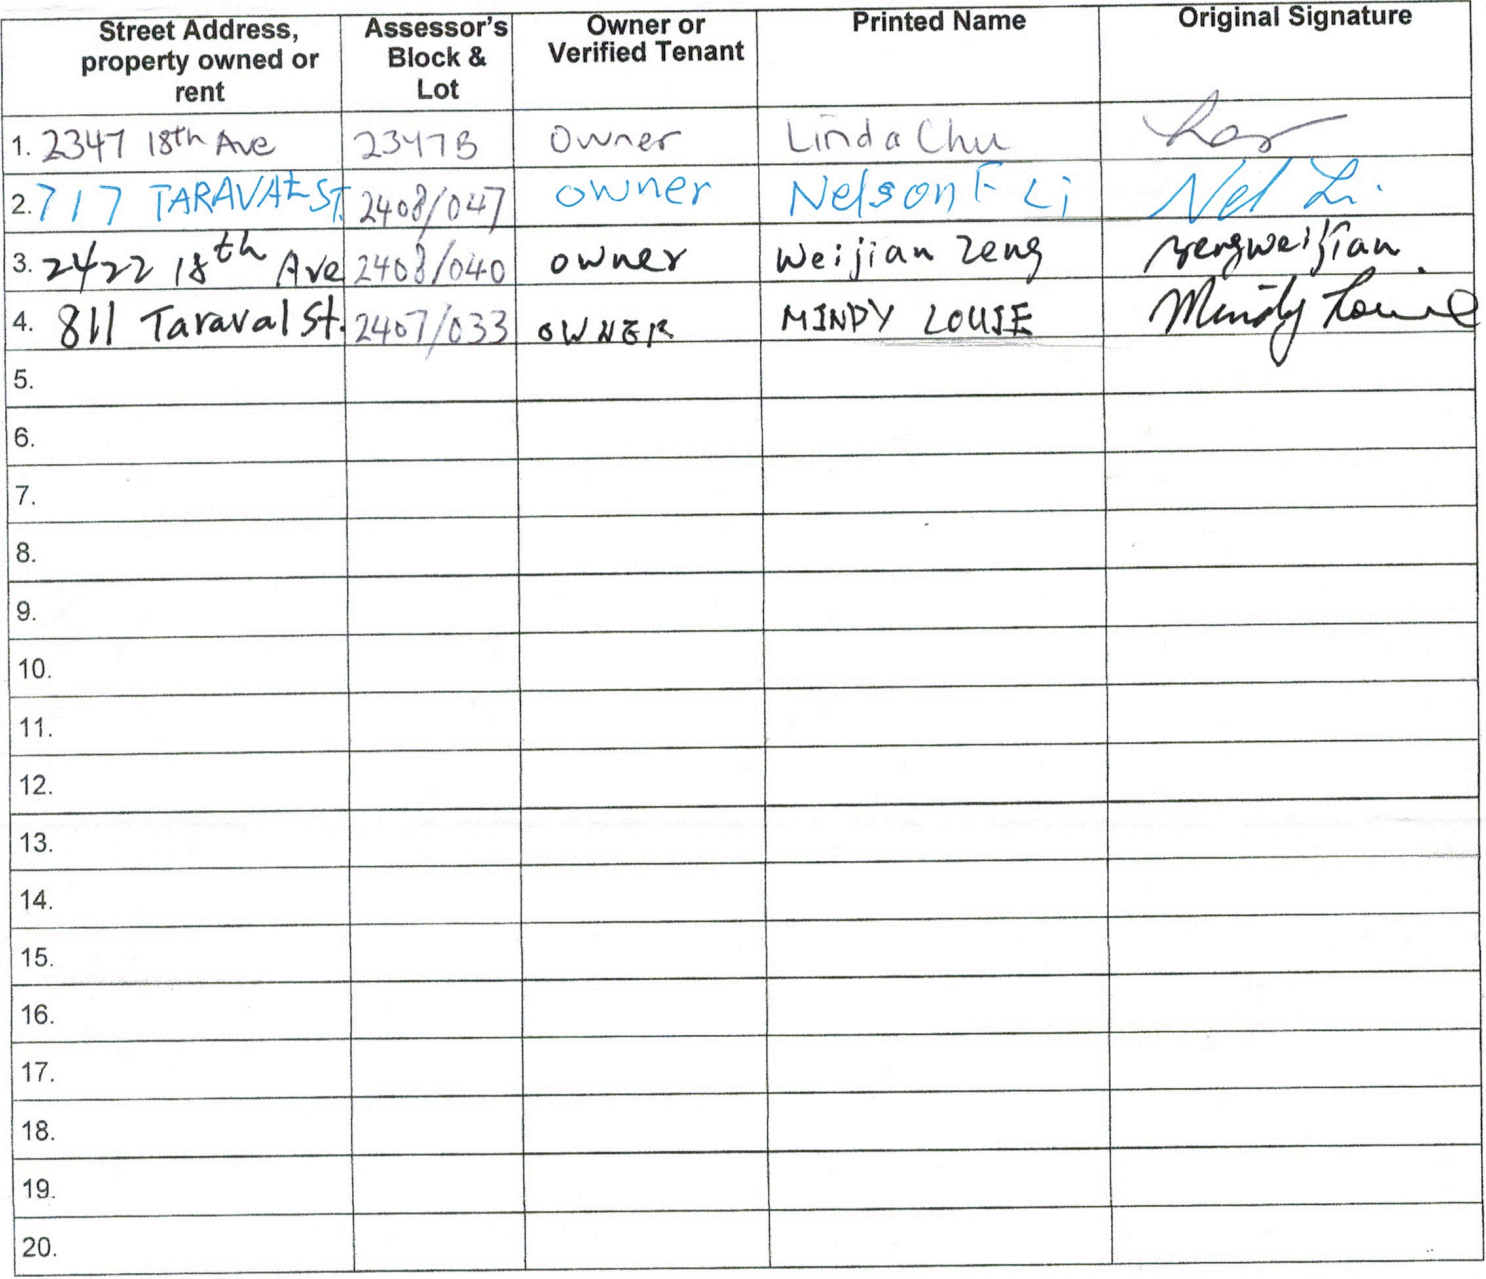 Street Address, property owned or rent Assessor's Block & Lot Owner or Verified Tenant Printed Name Original Signature
1. 2347 18th Ave 2347B Owner Linda Chu
2. 717 TARAVAL ST. 2408/047 owner Nelson F Li Nel Li
3. 2422 18th Ave 2408/040 owner Weijian Zeng zengweijian
4. 811 Taraval St. 2407/033 OWNER MINDY LOUIE Mindy Louie
5.
6.
7.
8.
9.
10.
11.
12.
13.
14.
15.
16.
17.
18.
19.
20.